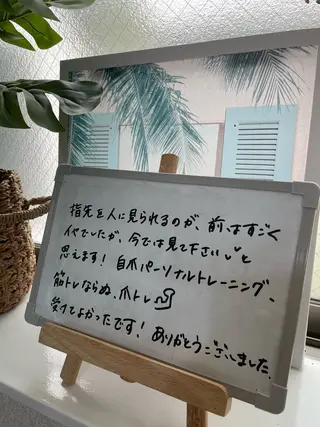 指先を人に見られるのが、前はすごく
イヤでしたが、今では見て下さい♡と
思えます! 自爪パーソナルトレーニング、
筋トレならぬ、爪トレ💪
受けてよかったです! ありがとうございました。